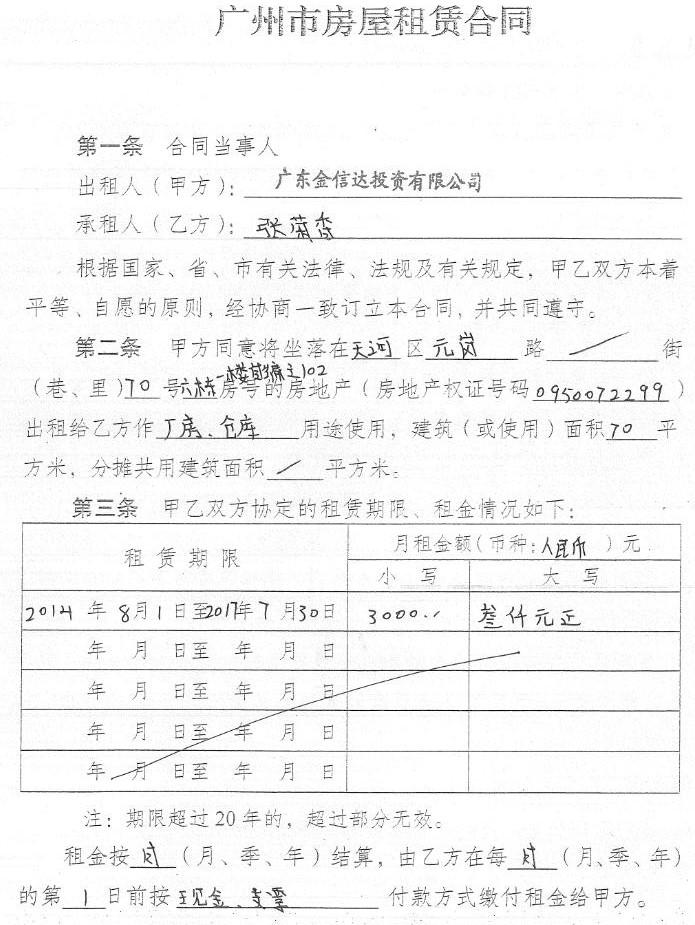 广州市房屋租赁合同
第一条 合同当事人
出租人（甲方）：广东金信达投资有限公司
承租人（乙方）：张菊香
根据国家、省、市有关法律、法规及有关规定，甲乙双方本着
平等、自愿的原则，经协商一致订立本合同，并共同遵守。
第二条 甲方同意将坐落在天河区元岗路／街
（巷、里）70号六栋一楼自编之102房号的房地产（房地产权证号码0950072299）
出租给乙方作厂房、仓库用途使用，建筑（或使用）面积70平
方米，分摊共用建筑面积／平方米。
第三条 甲乙双方协定的租赁期限、租金情况如下：
租赁期限 月租金额（币种：人民币）元
小写 大写
2014年8月1日至2017年7月30日 3000.. 叁仟元正
年 月 日至 年 月 日
年 月 日至 年 月 日
年 月 日至 年 月 日
年 月 日至 年 月 日
注：期限超过20年的，超过部分无效。
租金按月（月、季、年）结算，由乙方在每月（月、季、年）
的第1日前按现金、支票付款方式缴付租金给甲方。